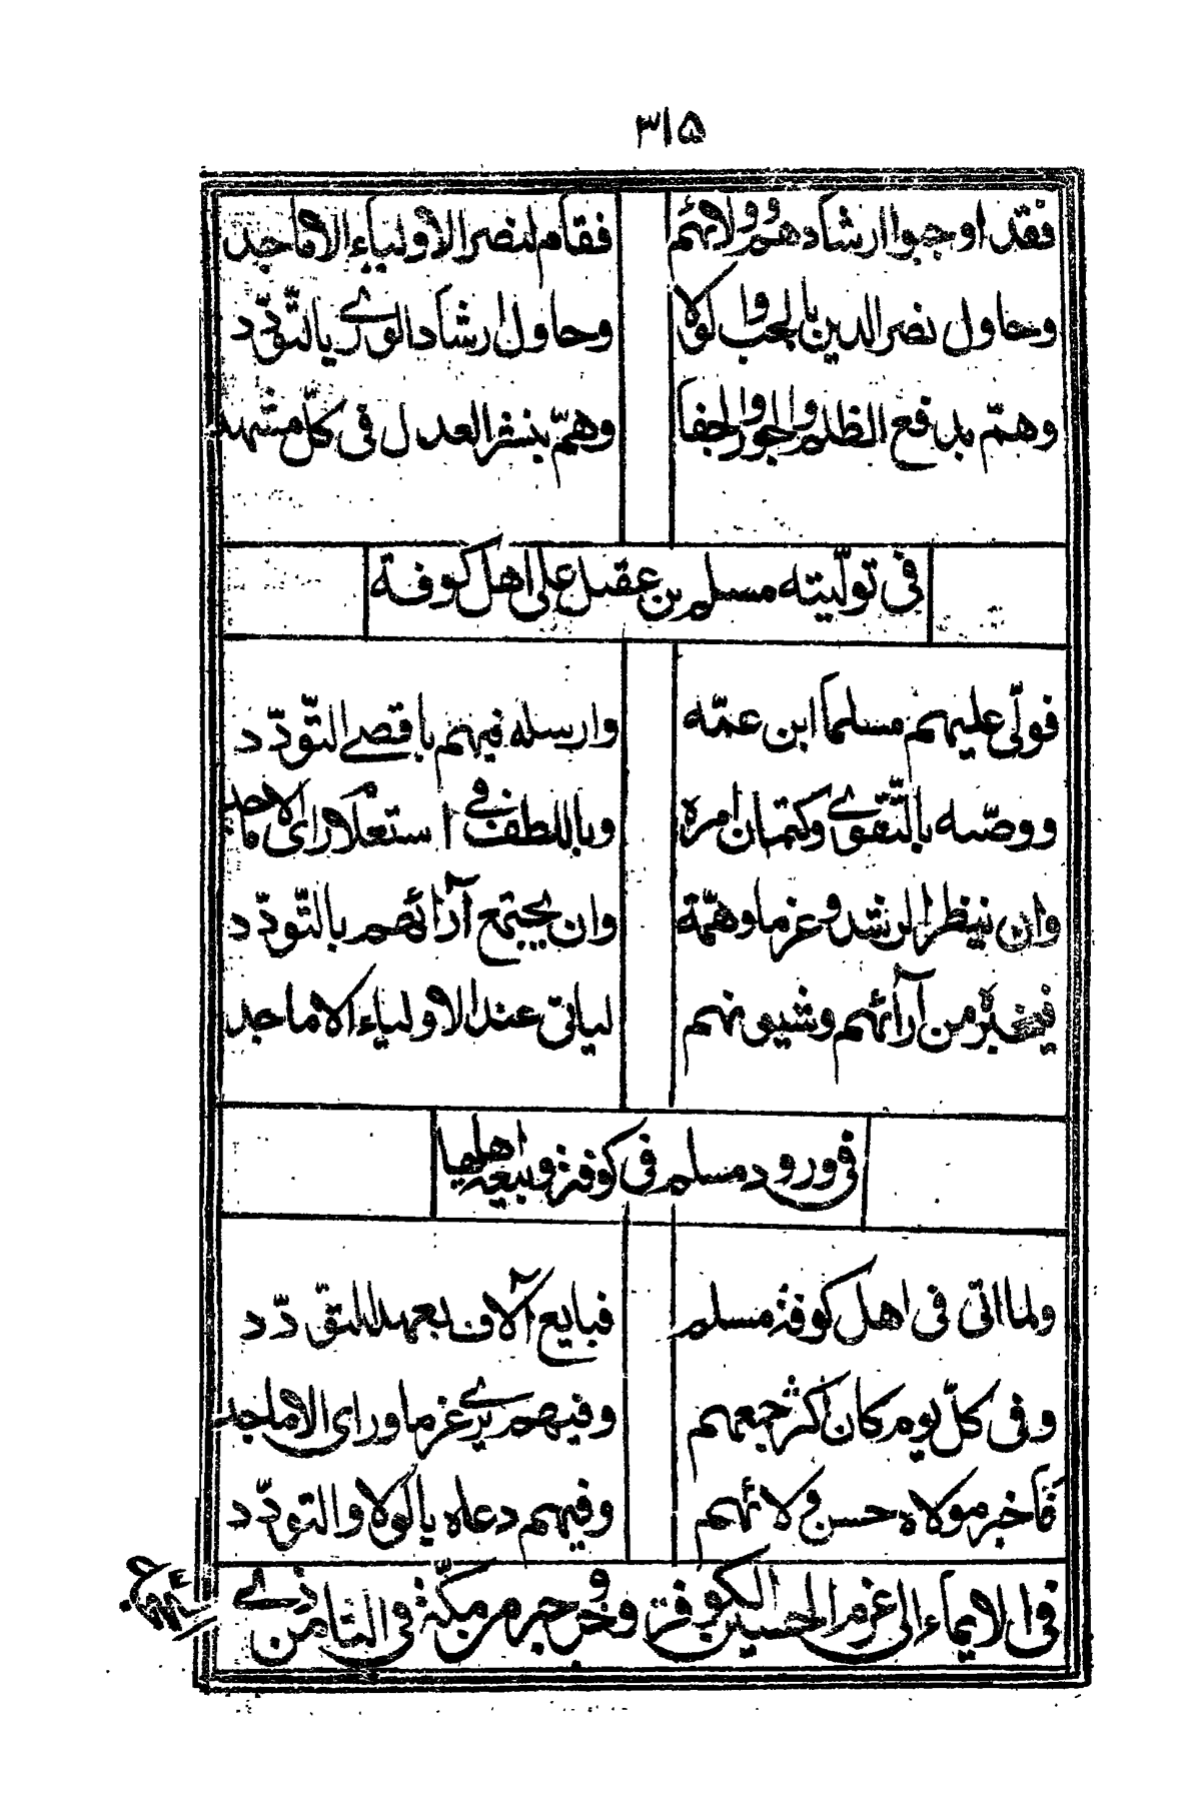 ٣١۵
فقد اوجبوا ارشادهم وولائهم فقام لنصر الاولياء الاماجد
وحاول نصر الدين بالحب والولا وحاول ارشاد الورى بالتّودّد
وهمّ بدفع الظلم والجور والجفا وهمّ بنشر العدل فى كلّ مشهد
فى توليته مسلم بن عقيل على اهل كوفة
فولّى عليهم مسلما ابن عمّه وارسله فيهم باقصى التّودّد
ووصّيه بالتّقوى وكتمان امره وباللطف فى استعلام راى الاماجد
وان ينظر الرشد وعزما وهمّة وان يجتمع آرائهم بالتّودّد
فيخبره من آرائهم وشيونهم لياتى عند الاولياء الاماجد
فى ورود مسلم فى كوفة وبيعة اهلها
ولما اتى فى اهل كوفة مسلم فبايع آلاف بعهد التّودّد
وفى كلّ يوم كان اكثر جمعهم وفيهم يرى عزما وراى الاماجد
فاخبر مولاه حسن ولائهم وفيهم دعاه بالولا والتودّد
فى الايماء الى عزم الحسين الكوفة وخروجه من مكّة فى الثامن ذى